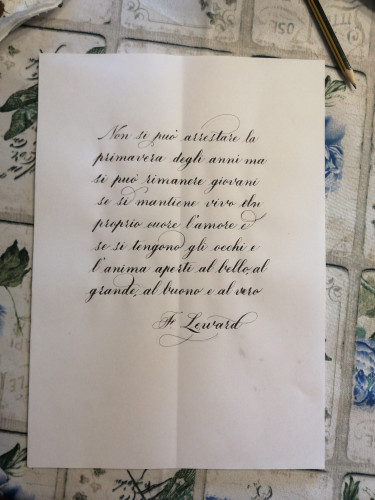 Non si può arrestare la
primavera degli anni ma
si può rimanere giovani
se si mantiene vivo
proprio cuore l'amore e
se si tengono gli occhi e
l'anima aperti al bello, al
grande, al buono e al vero
Fr Leward
050